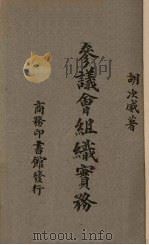 胡次威著
參議會組織實務
商務印書館發行